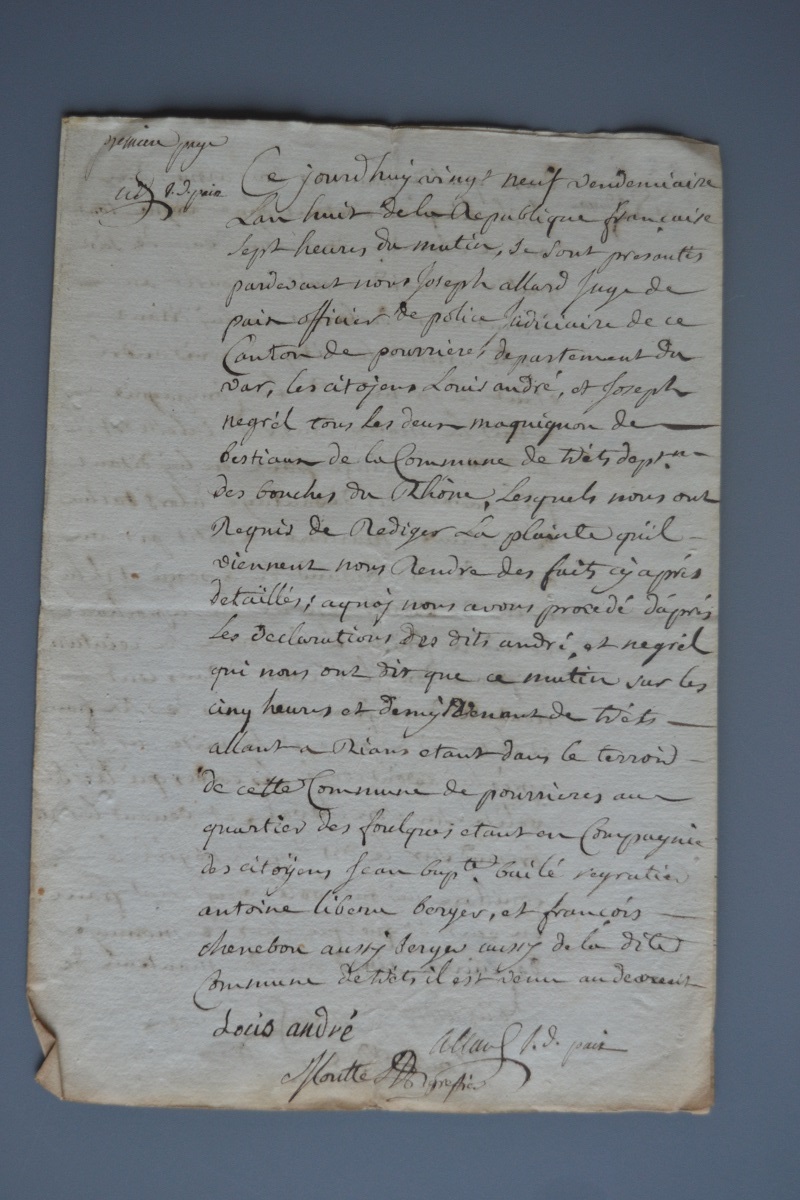 premiere page
J. d. paix
Ce jourdhuy vingt neuf vendemiaire
Lan huit de la Republique francaise
sept heures du matin, se sont presantés
pardevant nous Joseph allard Juge de
paix officier de police Judiciaire de ce
Canton de pourrieres departement du
var, les citoyens Louis andré, et Joseph
negrél tous les deux maquignon de
bestiaux de la Commune de tréts dept.
des bouches du Rhône, Lesquels nous ont
Requis de Rediger La plainte quil
viennent nous Rendre des faits cy après
detaillés; aquoy nous avons procedé daprés
les declarations des dits andré, et negrél
qui nous ont dit que ce matin sur les
cinq heures et demy venant de tréts
allant a Rians etant dans le terroir
de cette Commune de pourrieres au
quartier des foulques etant en Compagnie
des citoyens Jean bapte. bailé regratier
antoine berger, et francois
chenebon aussy berger aussy de la dite
Commune de tréts il est venu audevent
Locis andré
allard J. d. paix
Moutte greffier